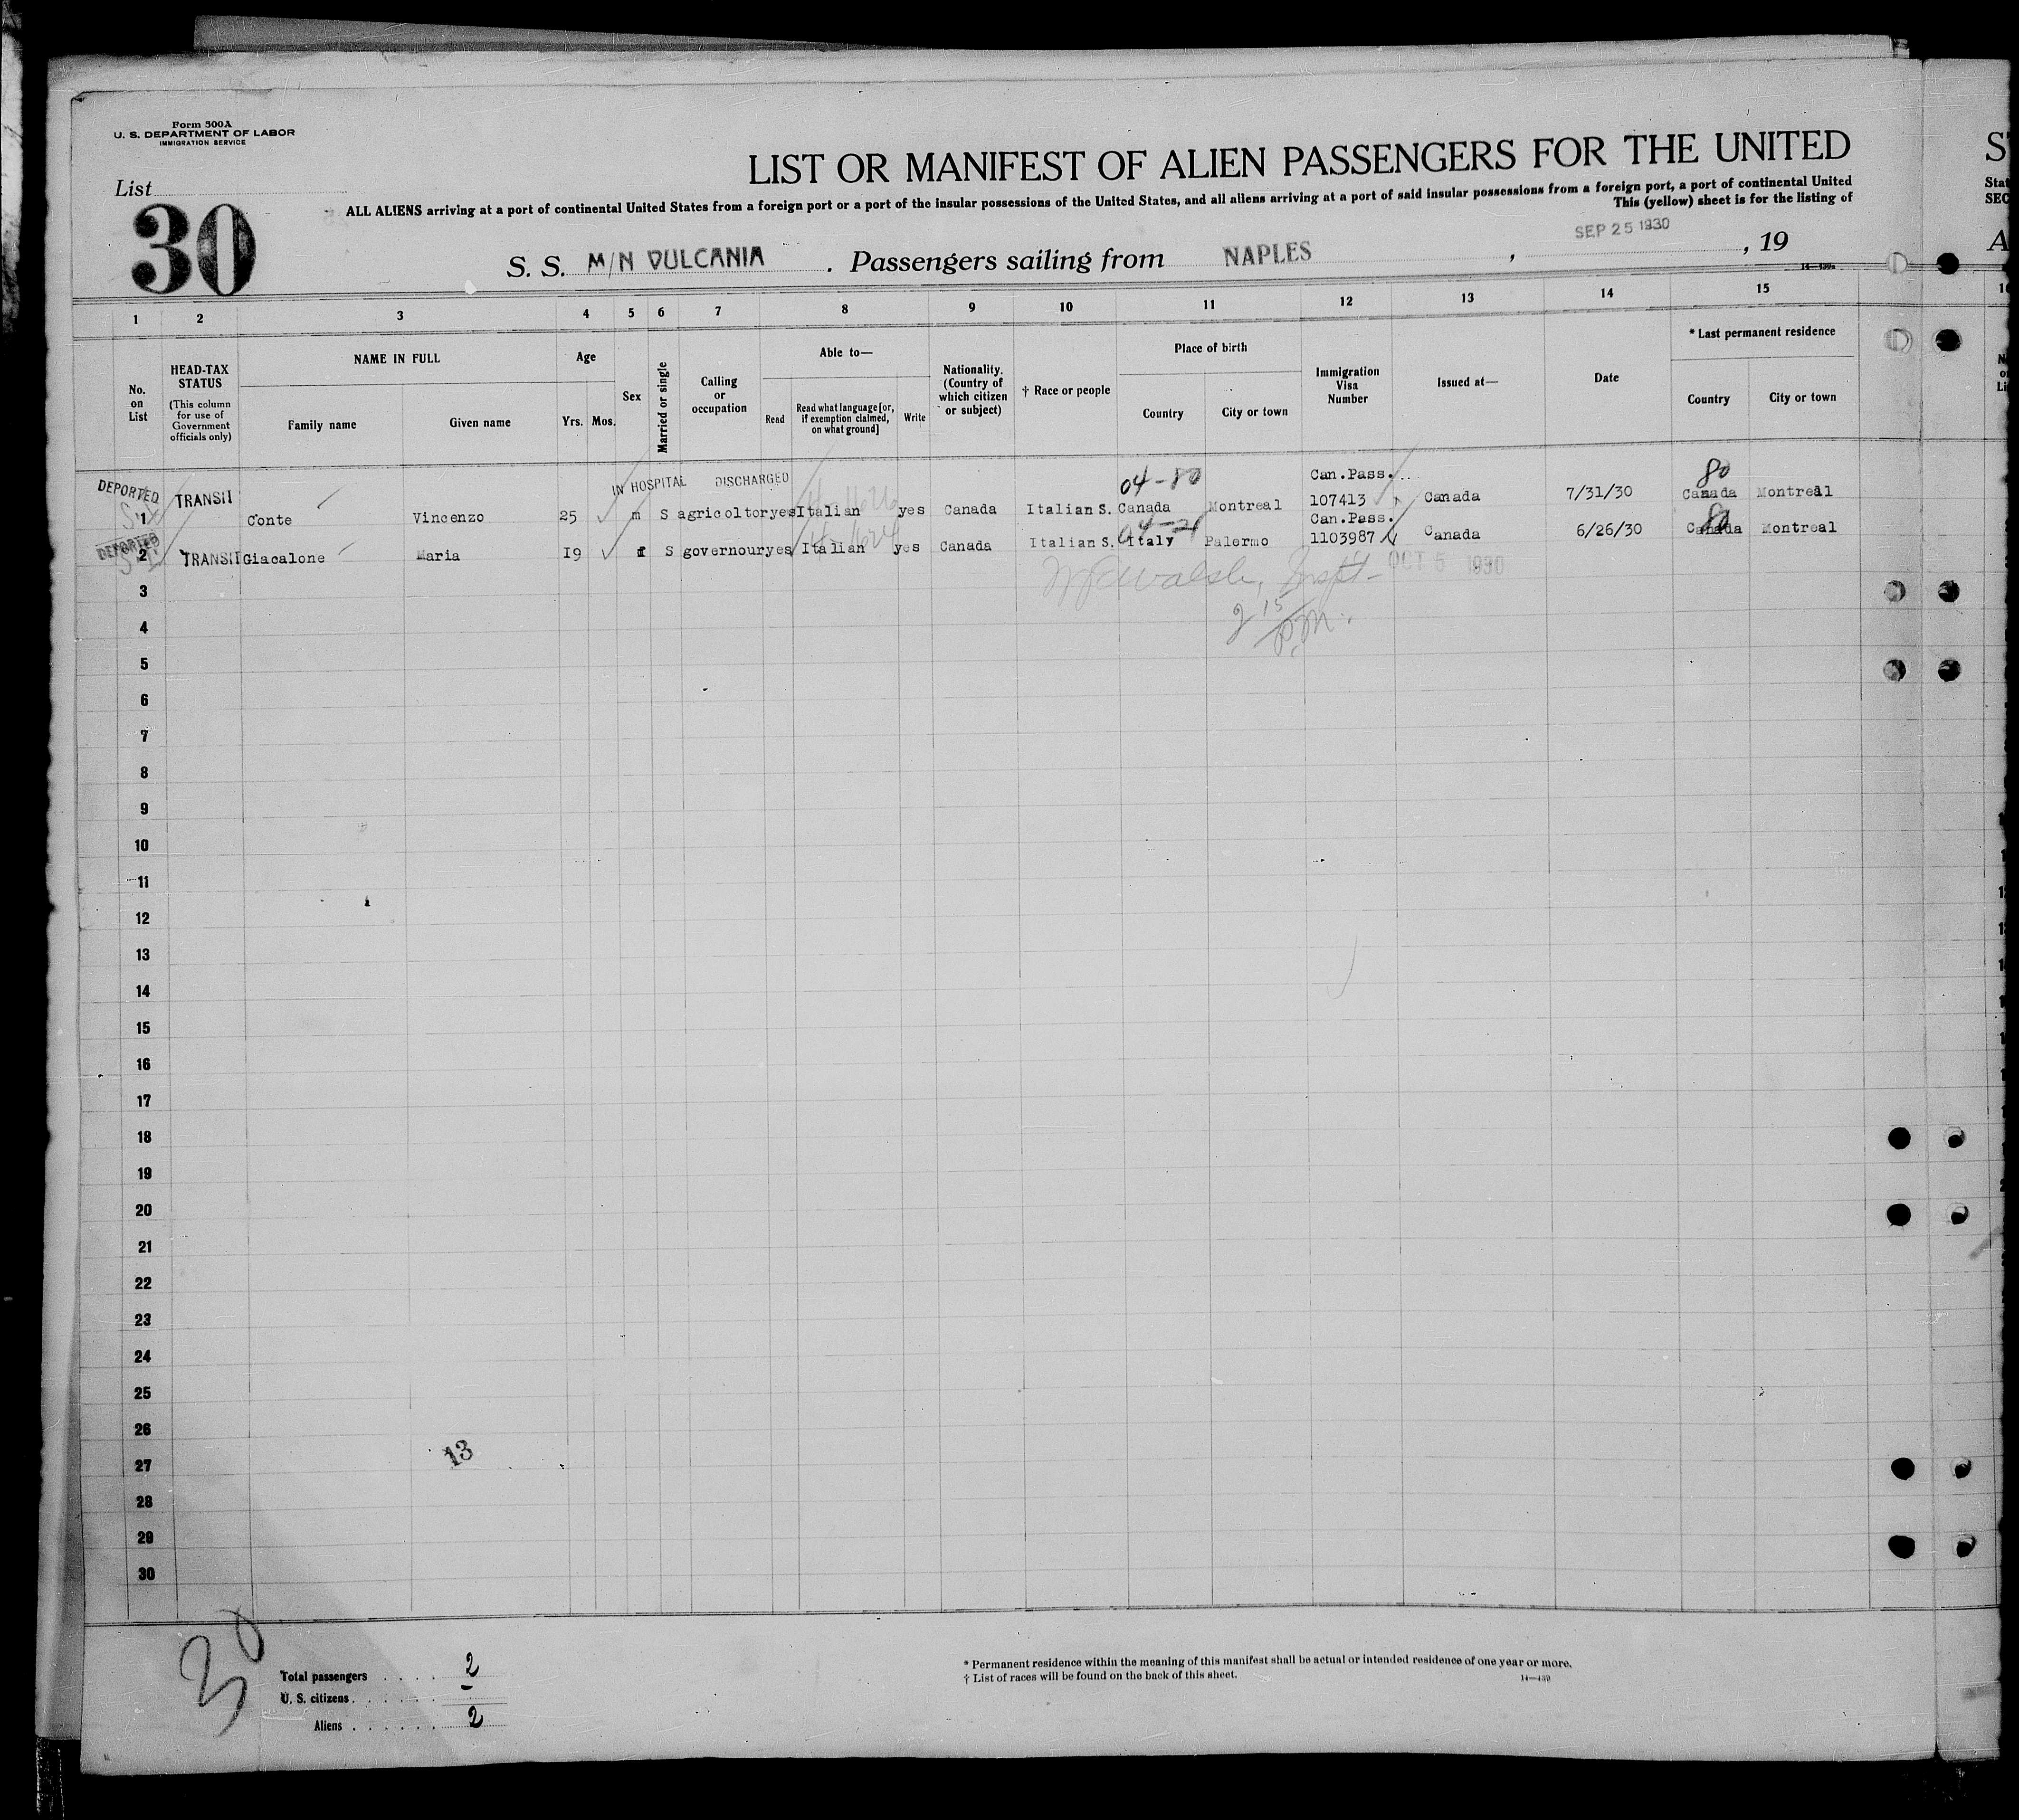 Form 500A
U. S. DEPARTMENT OF LABOR
IMMIGRATION SERVICE
List
30
LIST OR MANIFEST OF ALIEN PASSENGERS FOR THE UNITED
ALL ALIENS arriving at a port of continental United States from a foreign port or a port of the insular possessions of the United States, and all aliens arriving at a port of said insular possessions from a foreign port, a port of continental United
This (yellow) sheet is for the listing of
S. S. M/N VULCANIA . Passengers sailing from NAPLES , SEP 25 1930 , 19
14—430a
1 2 3 4 5 6 7 8 9 10 11 12 13 14 15
No. on List
HEAD-TAX STATUS
(This column for use of Government officials only)
NAME IN FULL
Family name
Given name
Age
Yrs.
Mos.
Sex
Married or single
Calling or occupation
Able to—
Read
Read what language [or, if exemption claimed, on what ground]
Write
Nationality. (Country of which citizen or subject)
† Race or people
Place of birth
Country
City or town
Immigration Visa Number
Issued at—
Date
* Last permanent residence
Country
City or town
DEPORTED
IN HOSPITAL DISCHARGED
04-80
Can.Pass.
80
1 TRANSIT Conte Vincenzo 25 m S agricoltor yes Italian yes Canada Italian S. Canada Montreal 107413 Canada 7/31/30 Canada Montreal
DEPORTED
Can.Pass.
80
2 TRANSIT Giacalone Maria I9 f S governour yes Italian yes Canada Italian S. Italy Palermo 1103987 Canada 6/26/30 Canada Montreal
Walsh, Inspt- OCT 5 1930
2 15 P.M.
3
4
5
6
7
8
9
10
11
12
13
14
15
16
17
18
19
20
21
22
23
24
25
26
13
27
28
29
30
30
Total passengers . . . . . 2
U. S. citizens . . . . . . –
Aliens . . . . . . . 2
* Permanent residence within the meaning of this manifest shall be actual or intended residence of one year or more.
† List of races will be found on the back of this sheet.
14—430